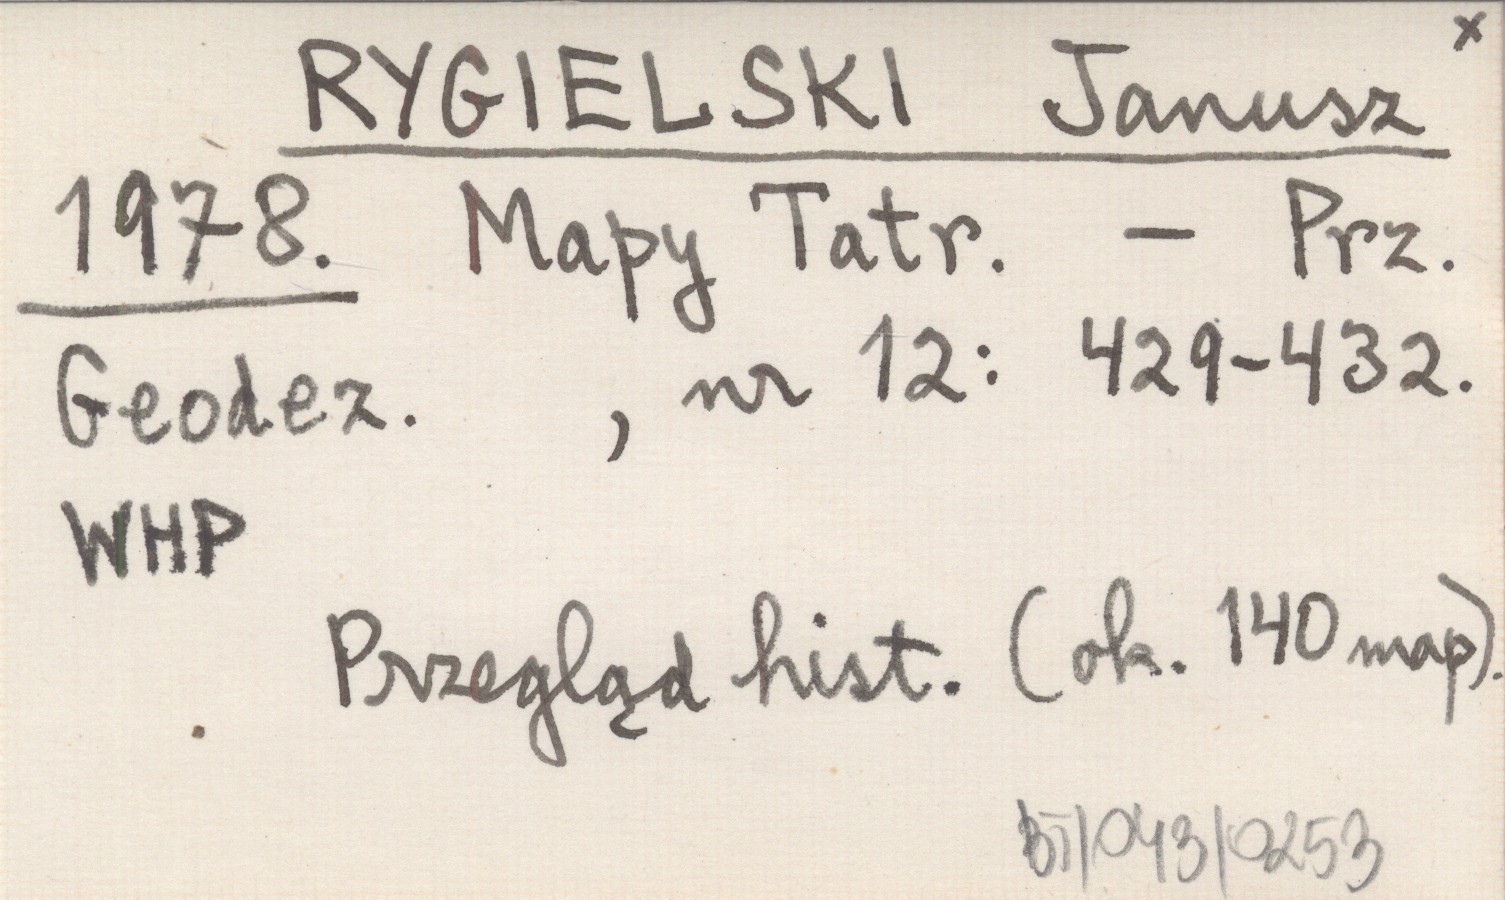 x
RYGIELSKI Janusz
1978. Mapy Tatr. - Prz.
Geodez. , nr 12: 429-432.
WHP
Przegląd hist. (ok. 140 map).
BT/043/0253